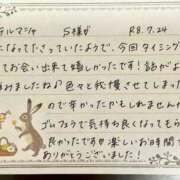 テルマシャ S様が R8.7.24
になってたさっていたようで、今回タイミング
てお会い出来て嬉しかったです!話がよ
みましたね♪色々と我慢させてしまった
ので辛かったかもしれませんが
ゴムフェラで気持ち良くなってもら
良かったです♡楽しいお時間
ありがとうございました!